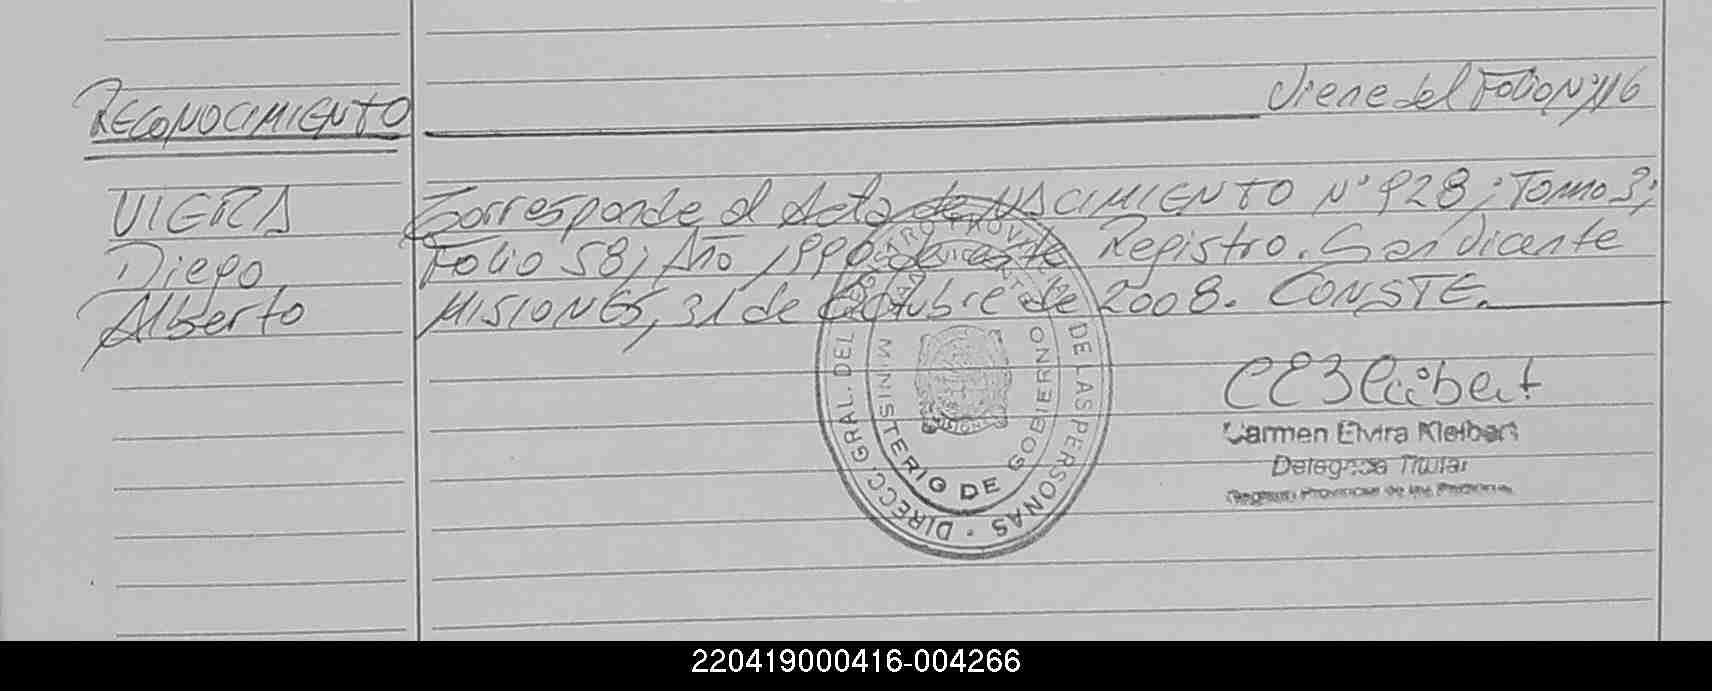 Viene del Folio Nº 116
RECONOCIMIENTO
VIERA
Diego
Alberto
Corresponde al Acta de NACIMIENTO Nº 928; Tomo 3;
Folio 58; Año 1990 de este Registro. San Vicente
MISIONES, 31 de Octubre de 2008. CONSTE.
DIRECC. GRAL. DEL REGISTRO PROVINCIAL DE LAS PERSONAS
MINISTERIO DE GOBIERNO
Carmen Elvira Kleibert
Delegada Titular
Registro Provincial de las Personas
220419000416-004266